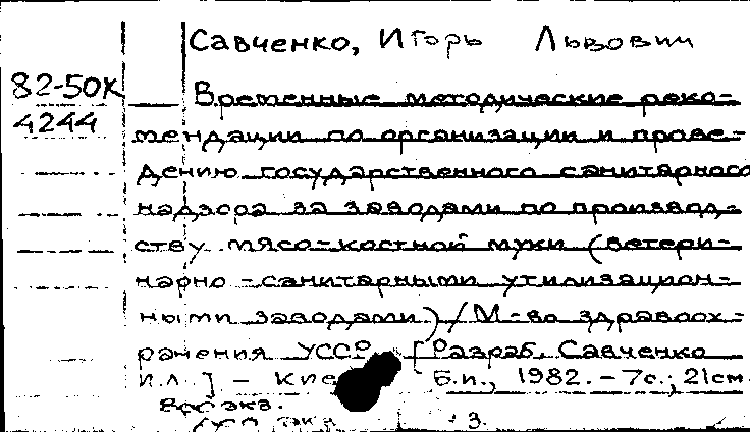 Савченко, Игорь Львович
82-50К
4244
Временные методические реко-
мендации по организации и прове-
дению государственного санитарного
надзора за заводами по производ-
ству мясо-костной муки (ветери-
нарно-санитарными утилизацион-
ными заводами) / М-во здравоох-
ранения УССР [Разраб. Савченко
И.Л.] - Кие Б.и., 1982. - 7с.; 21см.
экз.
3.